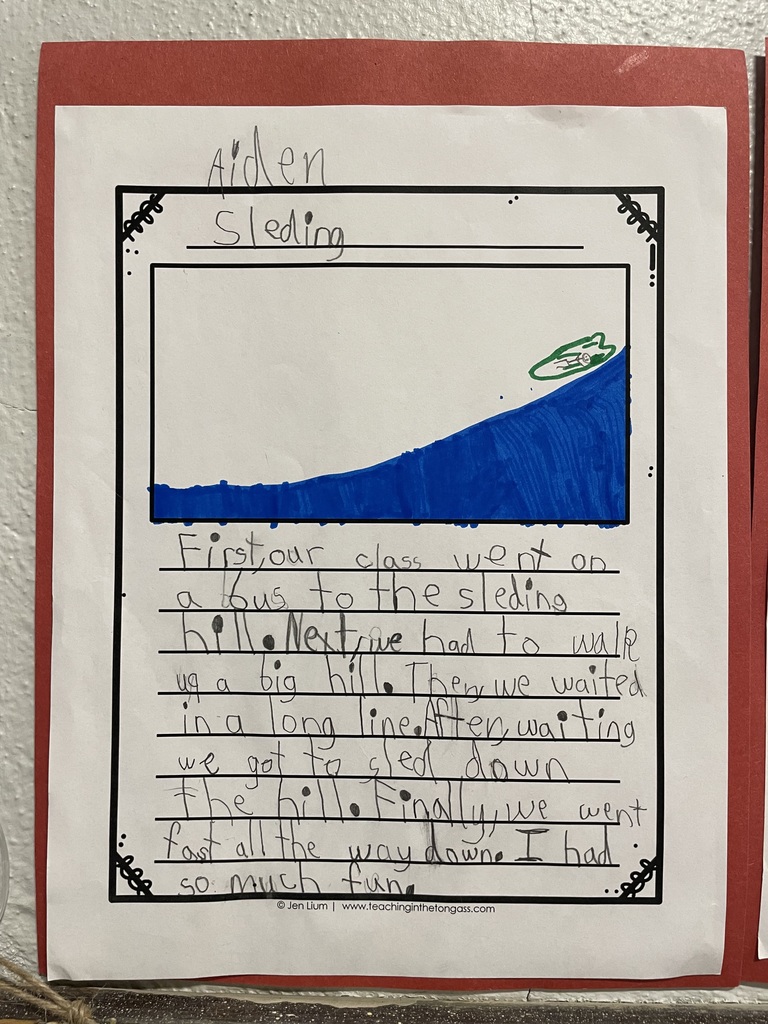 Aiden
Sleding
First, our class went on
a bus to the sleding
hill. Next, we had to walk
up a big hill. Then, we waited
in a long line. After, waiting
we got to sled down
the hill. Finally, we went
fast all the way down. I had
so much fun.
© Jen Lium | www.teachinginthetongass.com